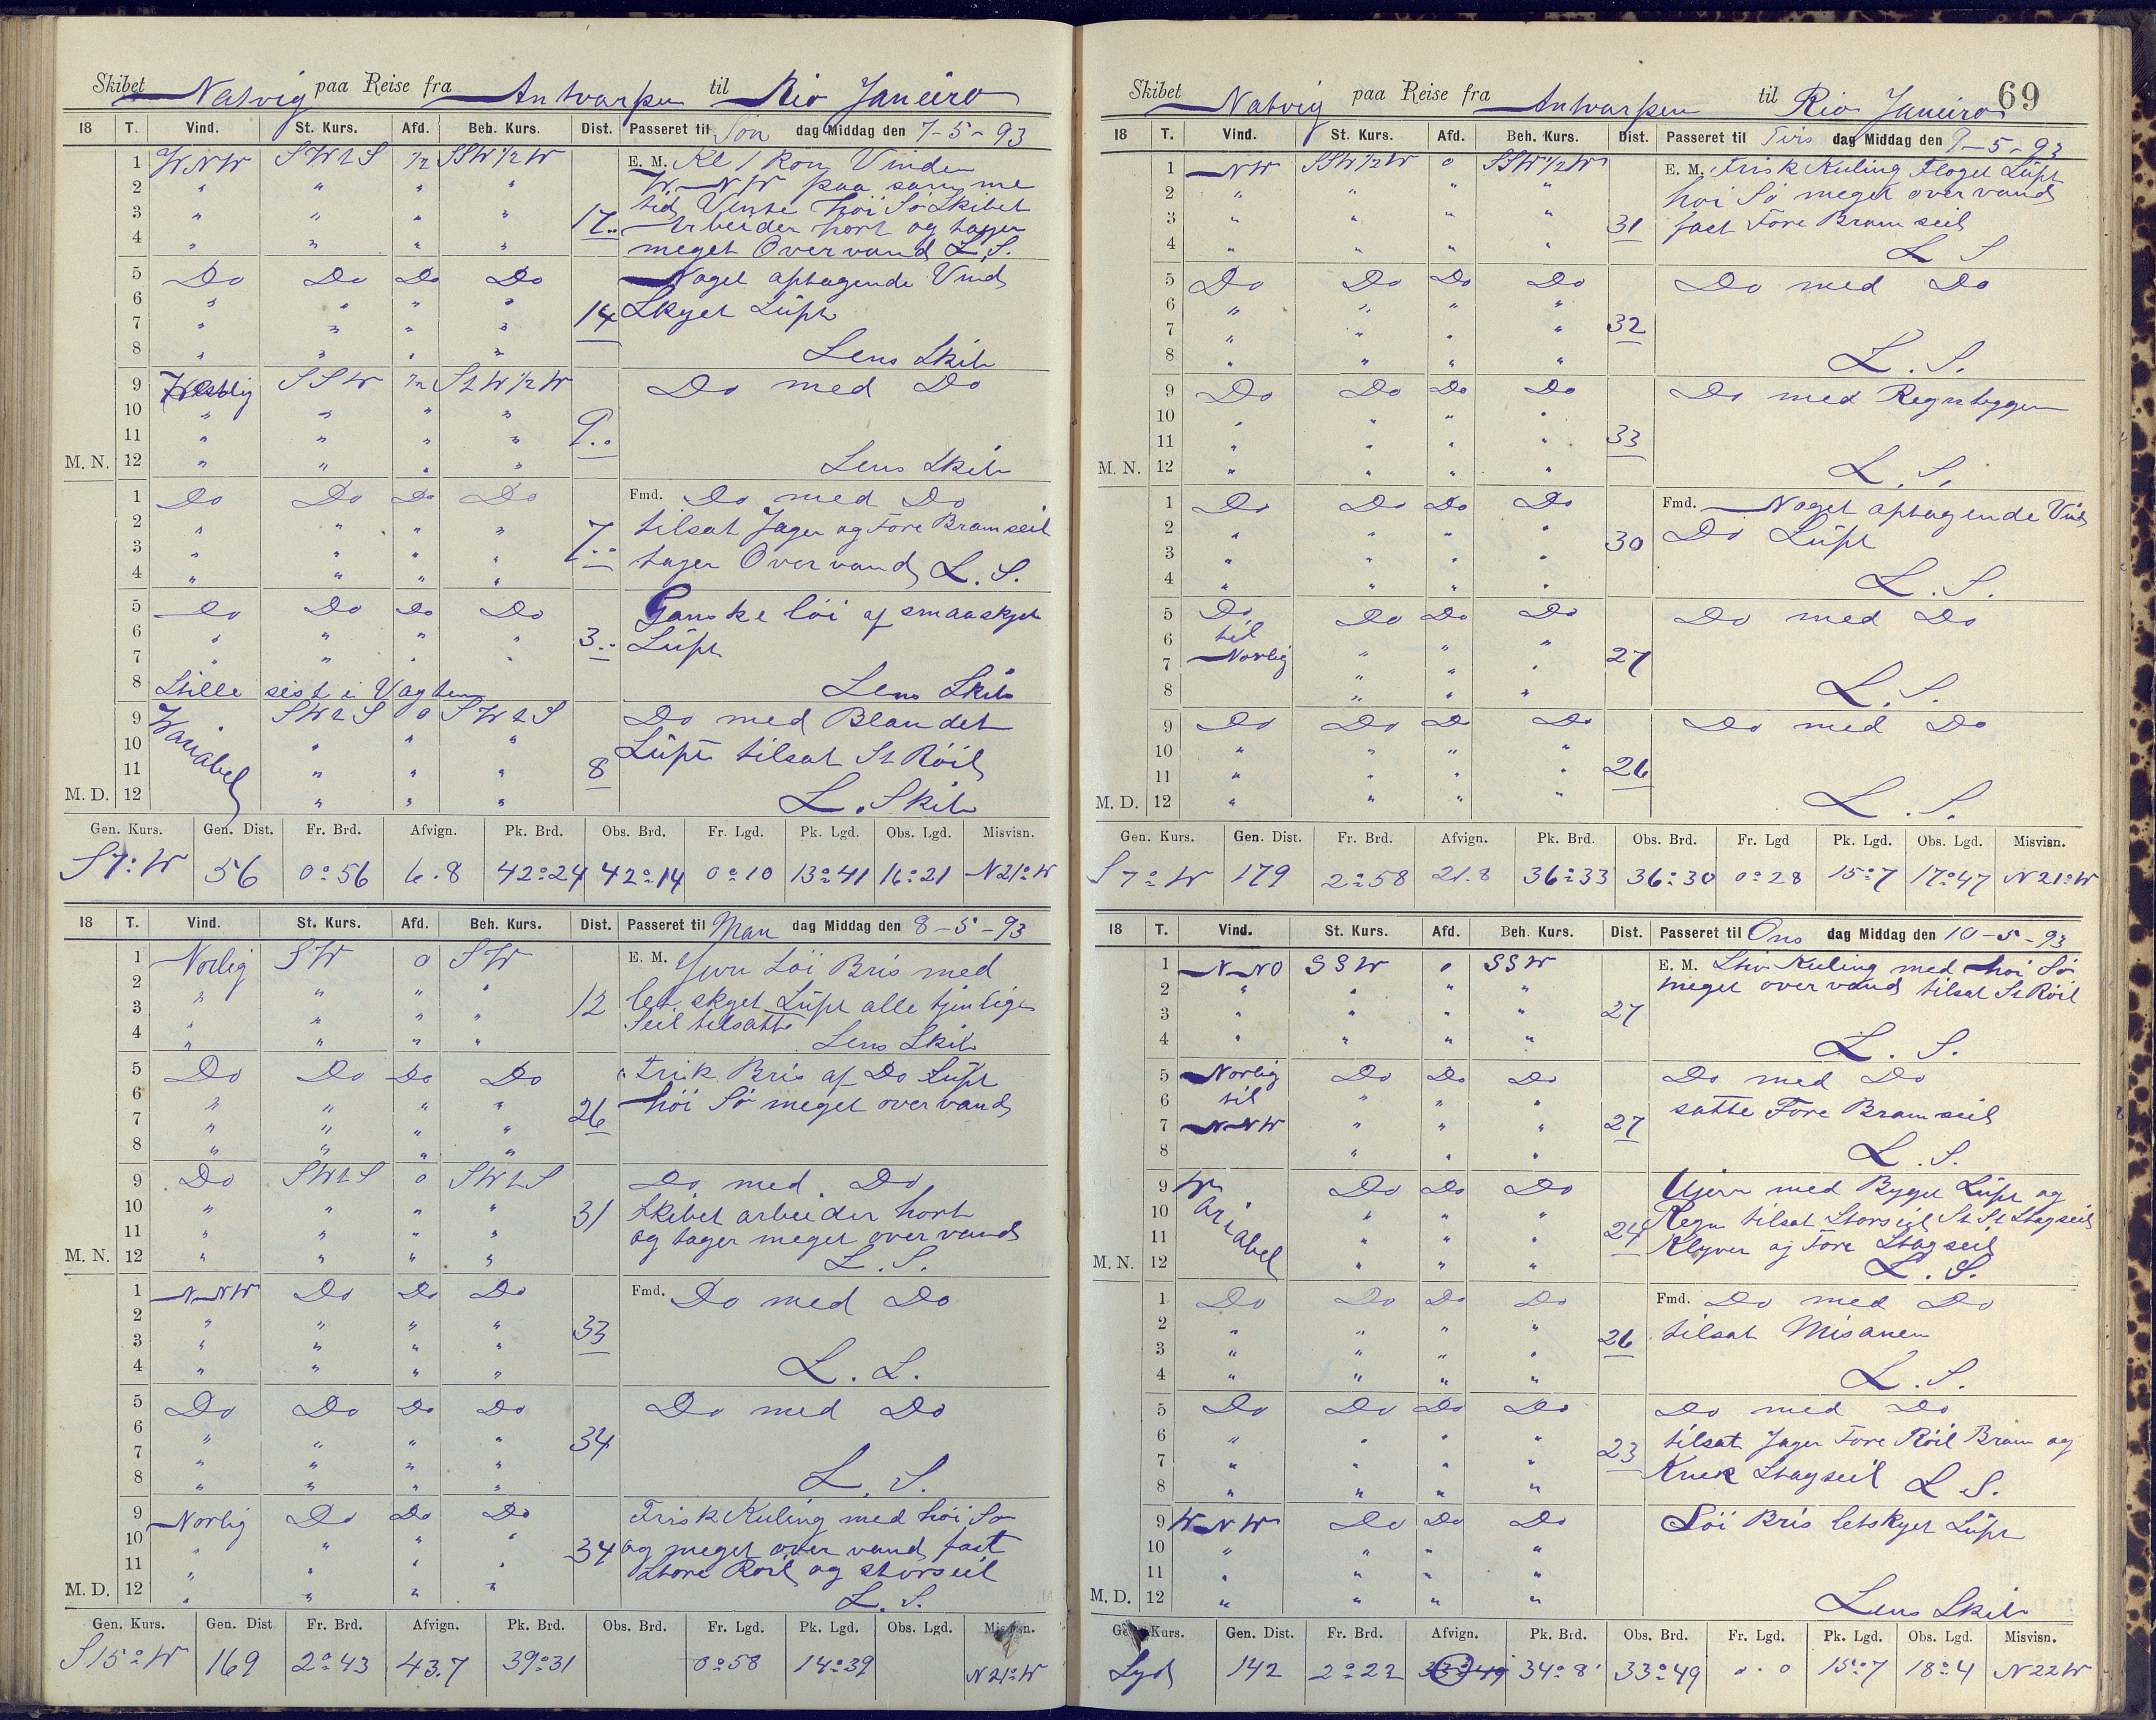 Skibet Natvig paa Reise fra Antwarpen til Rio Janeiro
18 T. Vind. St. Kurs. Afd. Beh. Kurs. Dist. Passeret til Søn dag Middag den 7-5-93
1 WNW SWtS 1/2 SSW 1/2 W E. M. Kl 1 kom Vinden
2 " " " " W-NW paa samme
3 " " " " 17.. tid Vente höi Sø Skibet
4 " " " " Arbeider hort og tager
meget Overvand L.S.
5 Do Do Do Do Noget aptagende Vind
6 " " " " 14 Skyet Lüft
7 " " " "
8 " " " " Lens Skib
9 Westlig SSW 1/2 StW 1/2 W Do med Do
10 " " " "
11 " " " " 9..
M. N. 12 " " " " Lens Skib
1 Do Do Do Do Fmd. Do med Do
2 " " " " tilsat Jager og Fore Bramseil
3 " " " " 7.. tager Overvand L.S.
4 " " " "
5 Do Do Do Do Ganske löi af smaaskyet
6 " " " " 3.. Lüft
7 " " " "
8 Stille sist i Vagten Lens Skib
9 Wariabel SWtS 0 SWtS Do med Blandet
10 " " " Lüft tilsat St Röil
11 " " " 8
M. D. 12 " " " L. Skib
Gen. Kurs. Gen. Dist. Fr. Brd. Afvign. Pk. Brd. Obs. Brd. Fr. Lgd. Pk. Lgd. Obs. Lgd. Misvisn.
S7°W 56 0°56 6.8 42°24 42°14 0°10 13°41 16°21 N21°W
18 T. Vind. St. Kurs. Afd. Beh. Kurs. Dist. Passeret til Man dag Middag den 8-5-93
1 Norlig SW 0 SW E. M. Jevn Löi Bris med
2 " " " " let skyet Lüft alle tjenlige
3 " " " " 12 Seil tilsatte
4 " " " " Lens Skib
5 Do Do Do Do Frisk Bris af Do Lüft
6 " " " " höi Sö meget overvand
7 " " " " 26
8 " " " "
9 Do SWtS 0 SWtS Do med Do
10 " " " " 31 Skibet arbeider hort
11 " " " " og tager meget overvand
M. N. 12 " " " " L.S.
1 NNW Do Do Do Fmd. Do med Do
2 " " " " 33
3 " " " "
4 " " " " L.L.
5 Do Do Do Do Do med Do
6 " " " " 34
7 " " " "
8 " " " " L.S.
9 Norlig Do Do Do Frisk Kuling med höi Sø
10 " " " " 34 og meget over vand fast
11 " " " " Store Röil og storseil
M. D. 12 " " " " L.S.
Gen. Kurs. Gen. Dist Fr. Brd. Afvign. Pk. Brd. Obs. Brd. Fr. Lgd. Pk. Lgd. Obs. Lgd. Misvisn.
S15°W 169 2°43 43.7 39°31 0°58 14°39 N21°W
69
Skibet Natvig paa Reise fra Antwarpen til Rio Janeiro
18 T. Vind. St. Kurs. Afd. Beh. Kurs. Dist. Passeret til Tirs dag Middag den 9-5-93
1 NW SSW 1/2 W 0 SSW 1/2 W E. M. Frisk Kuling Floget Lüft
2 " " " " höi Sö meget overvand
3 " " " " 31 fast Fore Bramseil
4 " " " " L S
5 Do Do Do Do Do med Do
6 " " " "
7 " " " " 32
8 " " " " L.S.
9 Do Do Do Do Do med Regnbyggen
10 " " " "
11 " " " " 33
M. N. 12 " " " " L.S.
1 Do Do Do Do Fmd. Noget aptagende Vind
2 " " " " 30 Do Lüft
3 " " " "
4 " " " " L.S.
5 Do Do Do Do Do med Do
6 til " " "
7 Norlig " " " 27
8 " " " L.S.
9 Do Do Do Do Do med Do
10 " " " "
11 " " " " 26
M. D. 12 " " " " L.S.
Gen. Kurs. Gen. Dist. Fr. Brd. Afvign. Pk. Brd. Obs. Brd. Fr. Lgd Pk. Lgd. Obs. Lgd. Misvisn.
S7°W 179 2°58 21.8 36°33 36°30 0°28 15°7 17°47 N21°W
18 T. Vind. St. Kurs. Afd. Beh. Kurs. Dist. Passeret til Ons dag Middag den 10-5-93
1 N-NO SSW 0 SSW E. M. Stiv Kuling med höi Sö
2 " " " " meget over vand tilsat St Röil
3 " " " " 27
4 " " " " L.S.
5 Norlig Do Do Do Do med Do
6 til " " " satte Fore Bramseil
7 NNW " " " 27
8 " " " L.S.
9 Wariabel Do Do Do Ujevn med Bygget Lüft og
10 " " " Regn tilsat Storseil St St Stagseil
11 " " " 24 Klyver og Fore Stagseil
M. N. 12 " " " L.S.
1 Do Do Do Do Fmd. Do med Do
2 " " " " 26 tilsat Misanen
3 " " " "
4 " " " " L.S.
5 Do Do Do Do Do med Do
6 " " " " tilsat Jager Fore Röil Bram og
7 " " " " 23 Krük Stagseil L S.
8 " " " "
9 WNW Do Do Do Löi Bris letskyet Lüft
10 " " " "
11 " " " "
M. D. 12 " " " " Lens Skib
Gen. Kurs. Gen. Dist. Fr. Brd. Afvign. Pk. Brd. Obs. Brd. Fr. Lgd. Pk. Lgd. Obs. Lgd. Misvisn.
Syd 142 2°22 33°49 34°8' 33°49 0.0 15°7 18°4 N22W